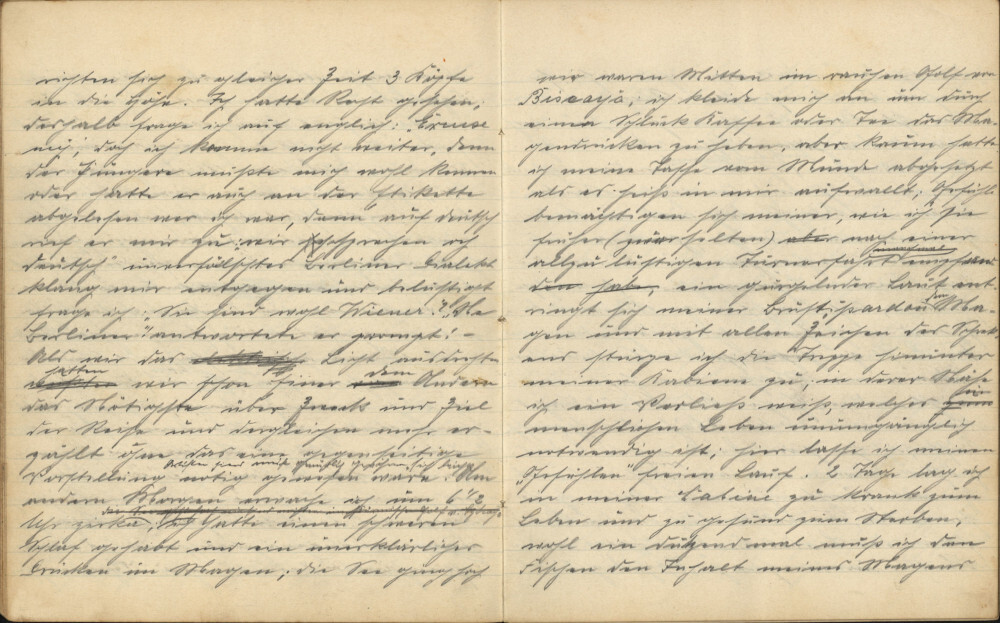 richten sich zu gleicher Zeit 3 Köpfe
in die Höhe. Ich hatte Rost gesehen,
deshalb frage ich auf englich: "Excuse
me, doch ich komme nicht weiter, denn
der Jüngere müßte mich wohl kennen
oder hatte er auch an der Etikette
abgelesen wer ich war, denn auf deutsch
rief er mir zu: wir sprechen och
deutsch" unverfälschtes Berliner Dialekt
klang mir entgegen und belustigt
frage ich "Sie sind wohl Wiener"? "Ne
Berliner" antwortete er prompt! -
Als wir das Licht ausdrehten
hatten wir schon Einer dem Andern
das Nötigste über Zweck und Ziel
der Reise und dergleichen mehr er-
zählt ohne das eine gegenseitige
Vorstellung nötig gewesen wäre. Am
andern Morgen erwache ich um 6 1/2
Uhr zirka, ich hatte einen schweren
Schlaf gehabt und ein unerklärliches
Drücken im Magen; die See ging hoch
wir waren Mitten im rauhen Golf von
Biscaya, ich kleide mich an um durch
einen Schluck Kaffee oder Tee das Ma-
gendrücken zu heben, aber kaum hatte
ich meine Tasse vom Munde abgesetzt
als es heiß in mir aufwallt; Gefühle
bemächtigen sich meiner, wie ich sie
früher (zwar selten) aber nach einer
manchmal
allzu lustigen Turnerfahrt empfun-
den habe, ein gurgelnder Laut ent-
ringt sich meiner Brust pardon dem Ma-
gen und mit allen Zeichen des Schreck-
ens stürze ich die Treppe hinunter
meiner Kabiene zu, in derer Nähe
ich ein Verließ weiß, welches für
menschlichen Leben unumgänglich
notwendig ist; hier lasse ich meinen
"Gefühlen" freien Lauf. 2 Tage lag ich
in meiner Cabine zu krank zum
Leben und zu gesund zum Sterben,
wohl ein dutzendmal muß ich den
Fischen den Inhalt meines Magens